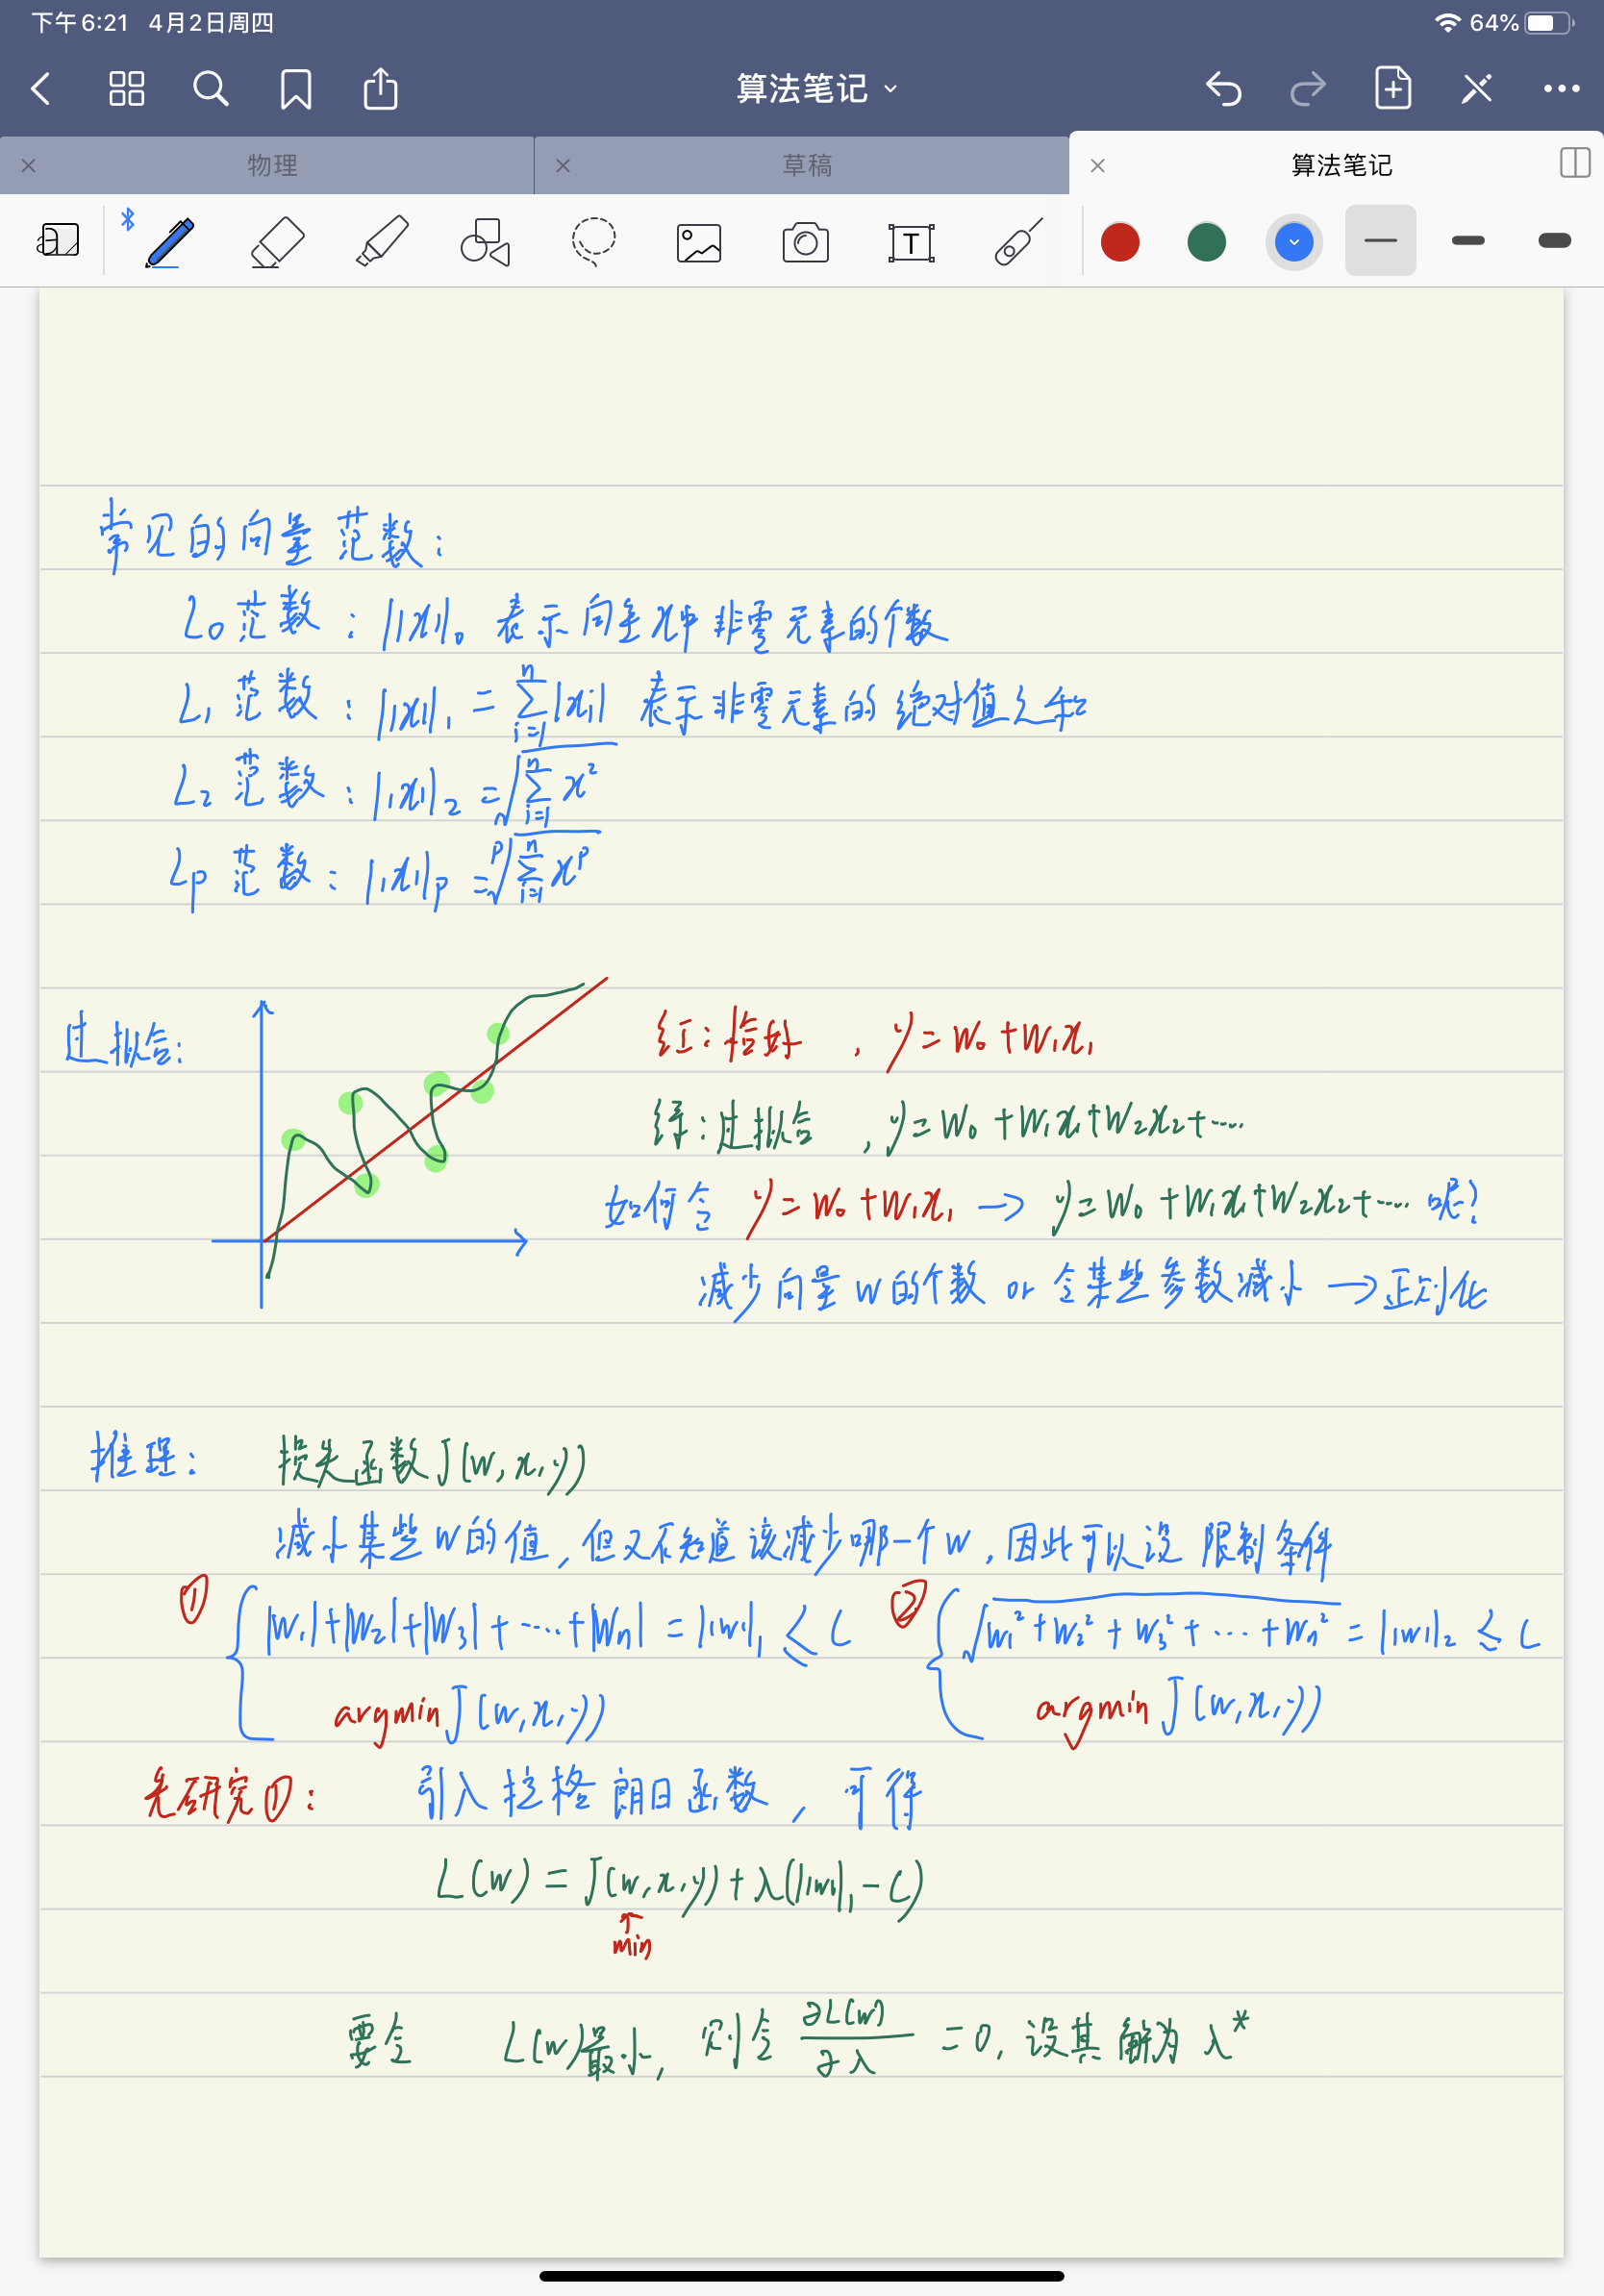 下午6:21 4月2日周四 64%
算法笔记
物理 草稿 算法笔记
T
常见的向量范数:
L₀范数: ||x||₀ 表示向量x中非零元素的个数
L₁范数: ||x||₁ = ∑ⁿᵢ₌₁|xᵢ| 表示非零元素的绝对值之和
L₂范数: ||x||₂ = √(∑ⁿᵢ₌₁ x²)
Lp范数: ||x||p = ᵖ√(∑ⁿᵢ₌₁ xᵖ)
过拟合:
红: 恰好, y = w₀ + w₁x₁
绿: 过拟合, y = w₀ + w₁x₁ + w₂x₂ + ……
如何令 y = w₀ + w₁x₁ → y = w₀ + w₁x₁ + w₂x₂ + …… 呢?
减少向量w的个数 or 令某些参数减小 → 正则化
推理: 损失函数J(w,x,y)
减小某些w的值, 但又不知道该减少哪一个w, 因此可以设限制条件
① |w₁|+|w₂|+|w₃|+……+|wₙ| = ||w||₁ ≤ C ② √(w₁²+w₂²+w₃²+…+wₙ²) = ||w||₂ ≤ C
argmin J(w,x,y) argmin J(w,x,y)
先研究①: 引入拉格朗日函数, 可得
L(w) = J(w,x,y) + λ(||w||₁ - C)
↑
min
要令 L(w)最小, 则令 ∂L(w)/∂λ = 0, 设其解为 λ*